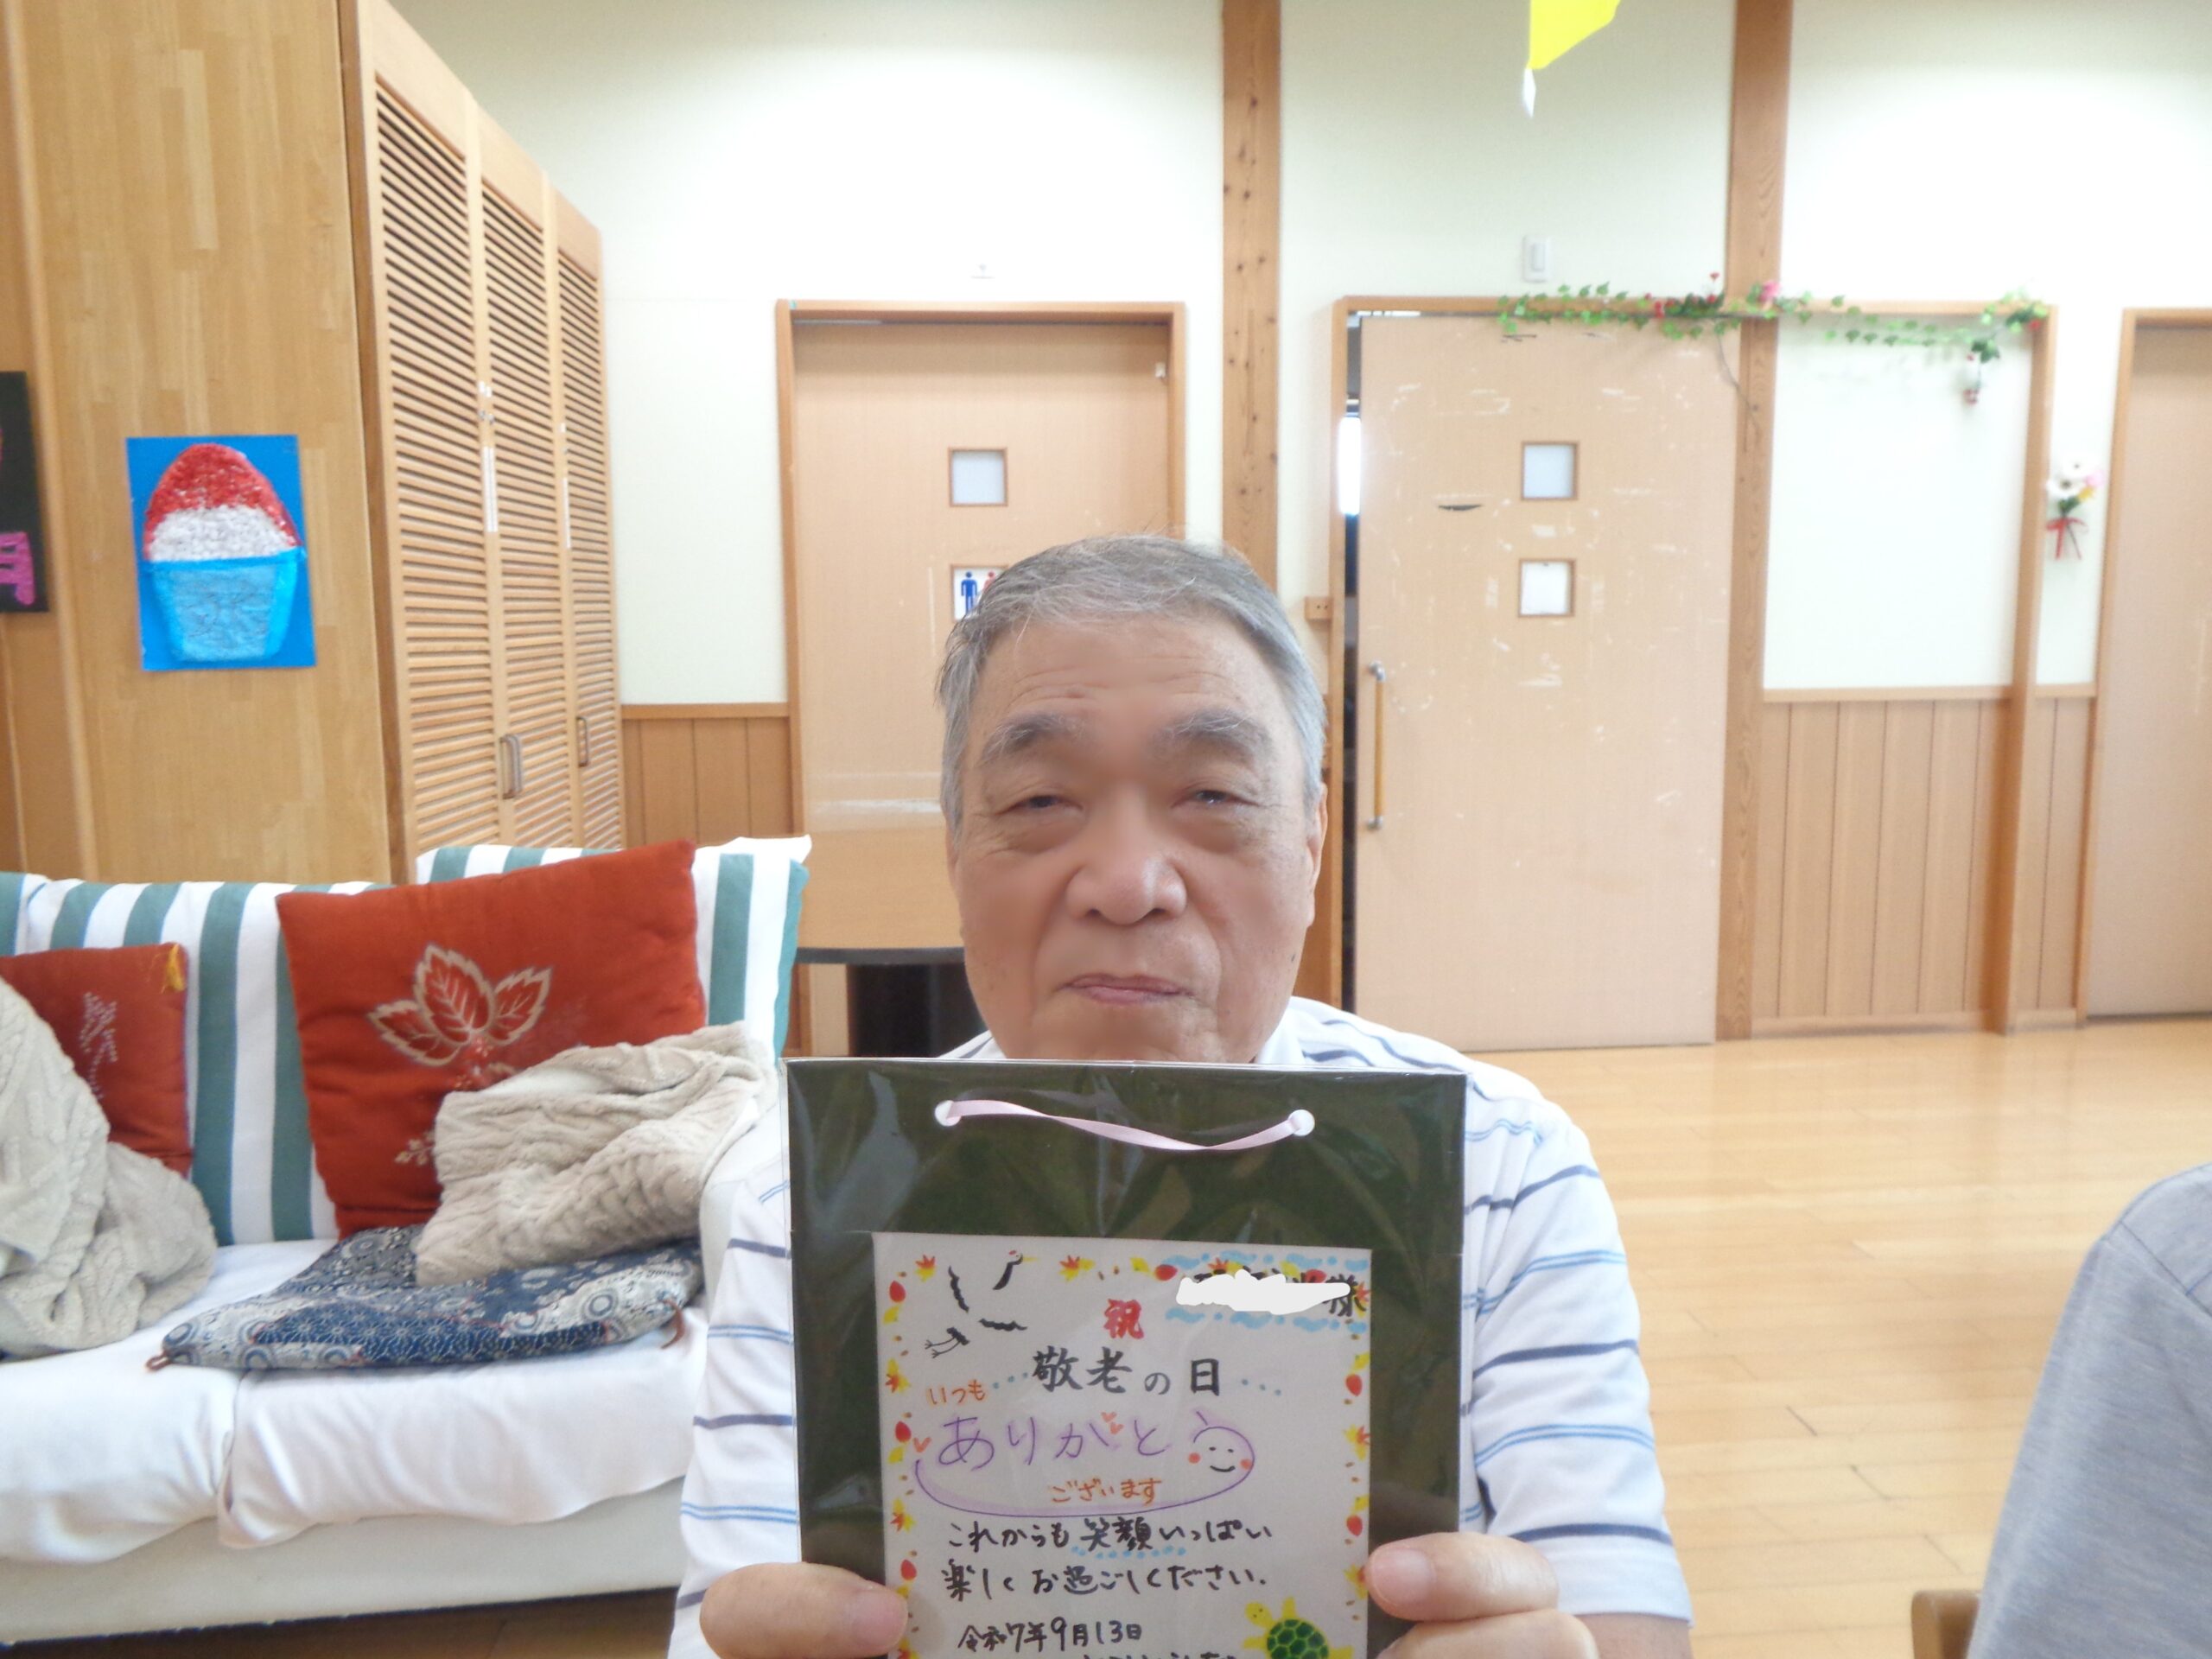 様
祝
敬老の日
いつも
ありがとう
ございます
これからも笑顔いっぱい
楽しくお過ごしください。
令和7年9月13日